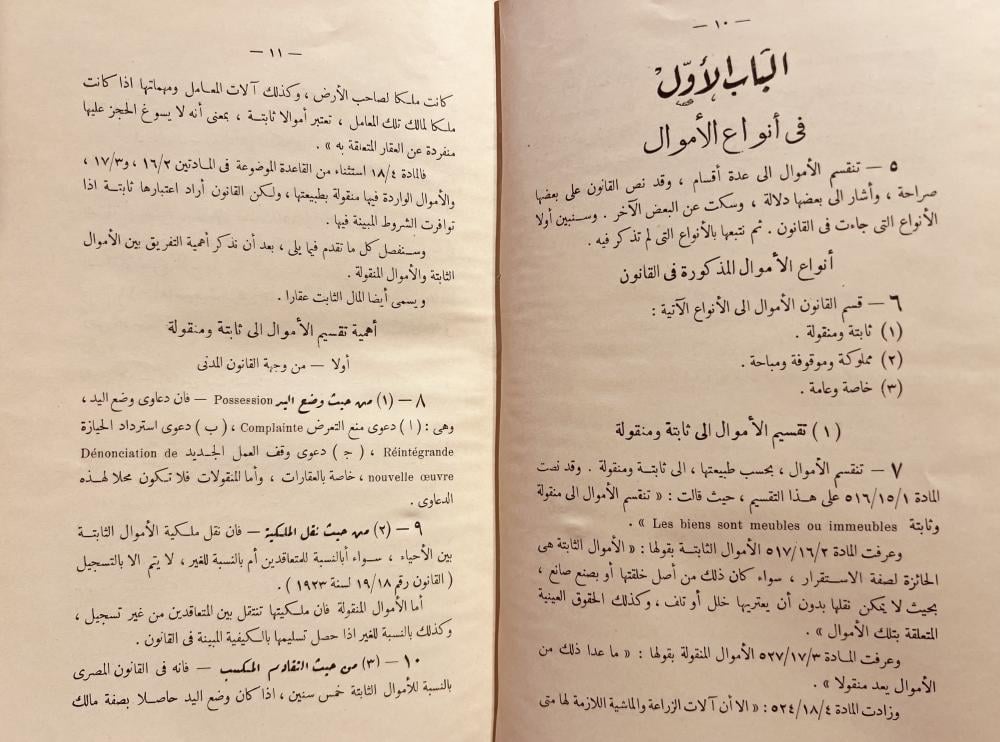 — ١٠ —
الباب الأوّل
فى أنواع الأموال
٥ — تنقسم الأموال الى عدة أقسام ، وقد نص القانون على بعضها
صراحة ، وأشار الى بعضها دلالة ، وسكت عن البعض الآخر . وسنبين أولا
الأنواع التى جاءت فى القانون . ثم نتبعها بالأنواع التى لم تذكر فيه .
أنواع الأموال المذكورة فى القانون
٦ — قسم القانون الأموال الى الأنواع الآتية :
(١) ثابتة ومنقولة .
(٢) مملوكة وموقوفة ومباحة .
(٣) خاصة وعامة .
(١) تقسيم الأموال الى ثابتة ومنقولة
٧ — تنقسم الأموال ، بحسب طبيعتها ، الى ثابتة ومنقولة . وقد نصت
المادة ٥١٦/١٥/١ على هذا التقسيم ، حيث قالت : « تنقسم الأموال الى منقولة
وثابتة Les biens sont meubles ou immeubles » .
وعرفت المادة ٥١٧/١٦/٢ الأموال الثابتة بقولها : « الأموال الثابتة هى
الحائزة لصفة الاستقرار ، سواء كان ذلك من أصل خلقتها أو بصنع صانع ،
بحيث لا يمكن نقلها بدون أن يعتريها خلل أو تلف ، وكذلك الحقوق العينية
المتعلقة بتلك الأموال » .
وعرفت المادة ٥٢٧/١٧/٣ الأموال المنقولة بقولها : « ما عدا ذلك من
الأموال يعد منقولا » .
وزادت المادة ٥٢٤/١٨/٤ : « الا أن آلات الزراعة والماشية اللازمة لها متى
— ١١ —
كانت ملكا لصاحب الأرض ، وكذلك آلات المعامل ومهماتها اذا كانت
ملكا لمالك تلك المعامل ، تعتبر أموالا ثابتة ، بمعنى أنه لا يسوغ الحجز عليها
منفردة عن العقار المتعلقة به » .
فالمادة ١٨/٤ استثناء من القاعدة الموضوعة فى المادتين ١٦/٢ ، و١٧/٣ ،
والأموال الواردة فيها منقولة بطبيعتها ، ولكن القانون أراد اعتبارها ثابتة اذا
توافرت الشروط المبينة فيها .
وسنفصل كل ما تقدم فيما يلى ، بعد أن نذكر أهمية التفريق بين الأموال
الثابتة والأموال المنقولة .
ويسمى أيضا المال الثابت عقارا .
أهمية تقسيم الأموال الى ثابتة ومنقولة
أولا — من وجهة القانون المدنى
٨ — (١) من حيث وضع اليد Possession — فان دعاوى وضع اليد ،
وهى : (ا) دعوى منع التعرض Complainte ، (ب) دعوى استرداد الحيازة
Réintégrande ، (ج) دعوى وقف العمل الجديد Dénonciation de
nouvelle œuvre ، خاصة بالعقارات ، وأما المنقولات فلا تكون محلا لهذه
الدعاوى .
٩ — (٢) من حيث نقل الملكية — فان نقل ملكية الأموال الثابتة
بين الأحياء ، سواء أبالنسبة للمتعاقدين أم بالنسبة للغير ، لا يتم الا بالتسجيل
( القانون رقم ١٩/١٨ لسنة ١٩٢٣ ) .
أما الأموال المنقولة فان ملكيتها تنتقل بين المتعاقدين من غير تسجيل ،
وكذلك بالنسبة للغير اذا حصل تسليمها بالكيفية المبينة فى القانون .
١٠ — (٣) من حيث التقادم المكسب — فانه فى القانون المصرى
بالنسبة للأموال الثابتة خمس سنين ، اذا كان وضع اليد حاصلا بصفة مالك